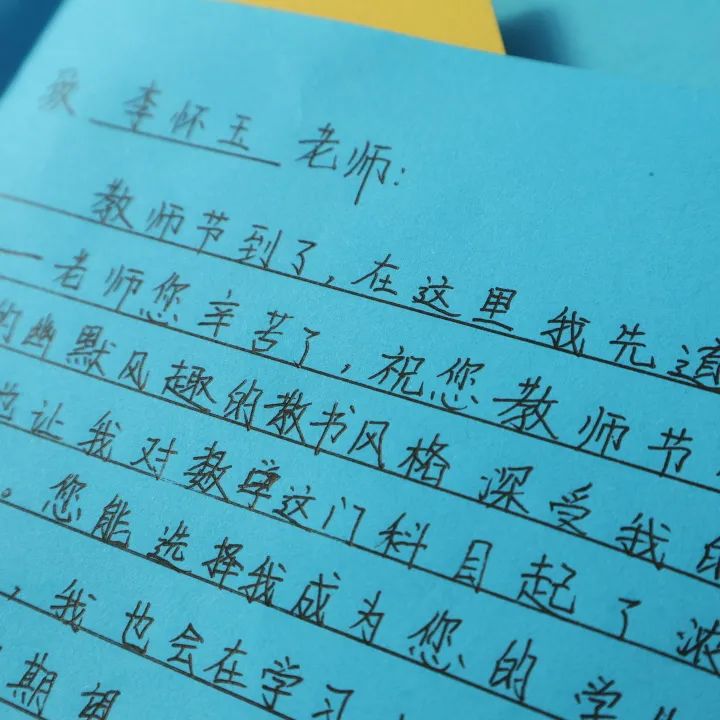 致 李怀玉 老师:
教师节到了,在这里我先道
一老师您辛苦了,祝您教师节
的幽默风趣的教书风格深受我的
也让我对数学这门科目起了浓
。您能选择我成为您的学
,我也会在学习
期望